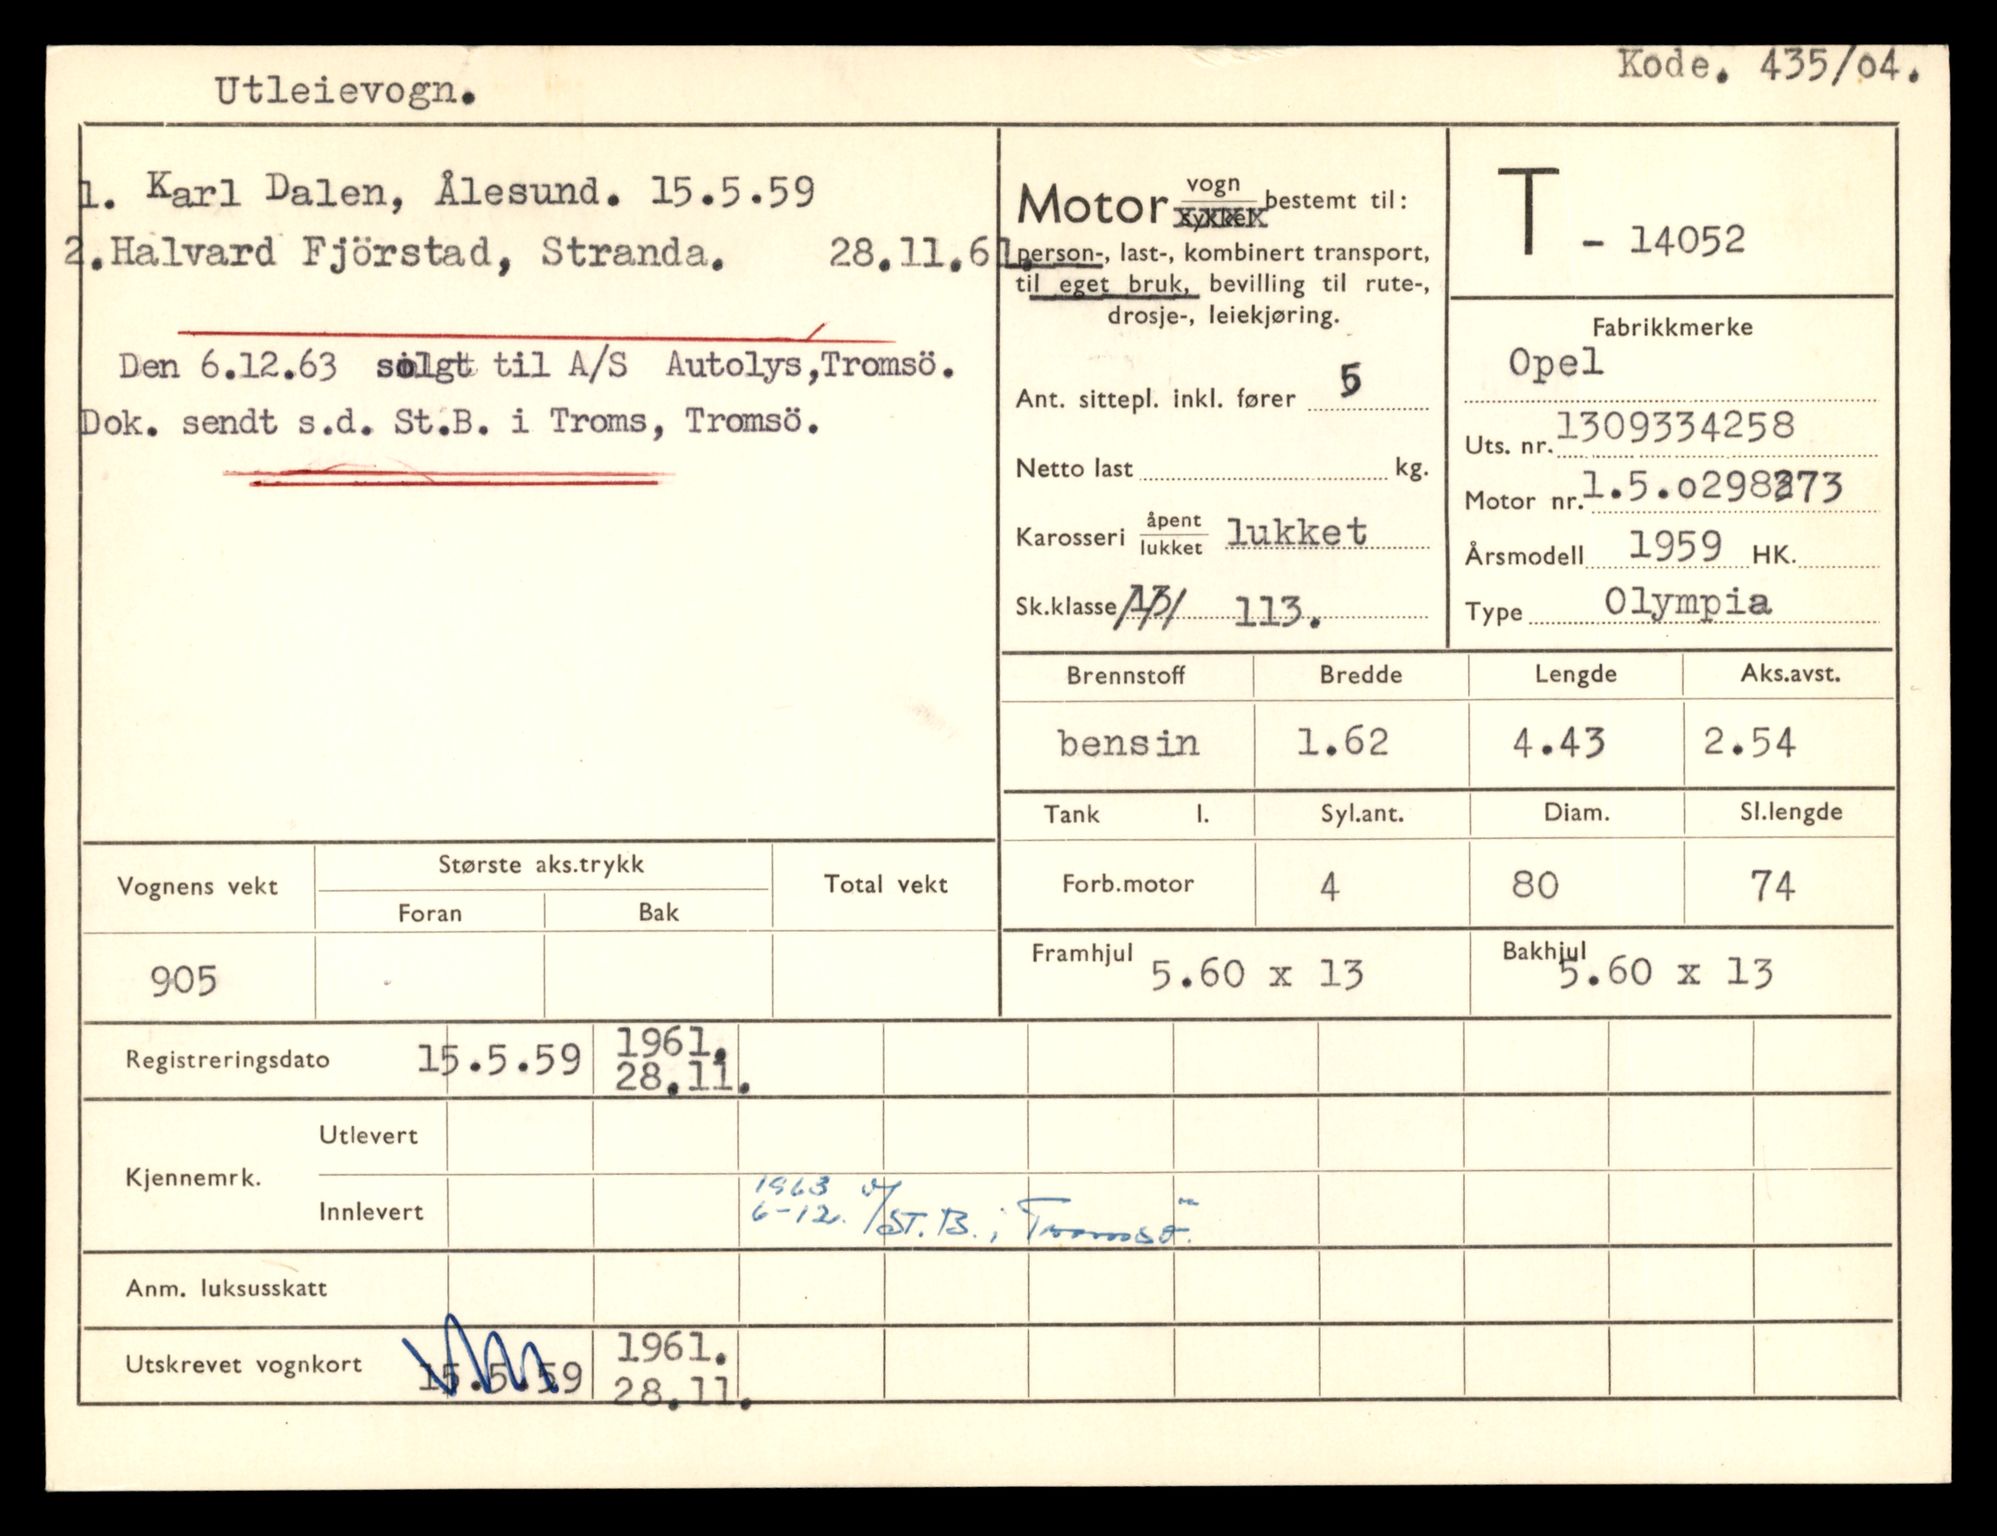 Kode. 435/o4.
Utleievogn.
1. Karl Dalen, Ålesund. 15.5.59
2.Halvard Fjörstad, Stranda. 28.11.61.
Den 6.12.63 solgt til A/S Autolys,Tromsö.
Dok. sendt s.d. St.B. i Troms, Tromsö.
Motor vogn bestemt til:
sykkel
person-, last-, kombinert transport,
til eget bruk, bevilling til rute-,
drosje-, leiekjøring.
Ant. sittepl. inkl. fører 5
Netto last kg.
Karosseri åpent lukket lukket
Sk.klasse 13/ 113.
T - 14052
Fabrikkmerke
Opel
Uts. nr. 1309334258
Motor nr. 1.5.o298373
Årsmodell 1959 HK.
Type Olympia
Brennstoff Bredde Lengde Aks.avst.
bensin 1.62 4.43 2.54
Tank l. Syl.ant. Diam. Sl.lengde
Forb.motor 4 80 74
Framhjul 5.60 x 13 Bakhjul 5.60 x 13
Vognens vekt Største aks.trykk Total vekt
Foran Bak
905
Registreringsdato 15.5.59 1961.
28.11.
Kjennemrk.
Utlevert
Innlevert 1963 v/
6-12. St.B. i Tromsö.
Anm. luksusskatt
Utskrevet vognkort 15.5.59 1961.
28.11.